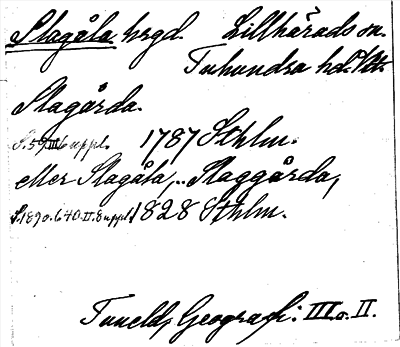 Slagåla hrgd. Lillhärads sn.
Tuhundra hd. Vtm.
Slagårda.
S. 59. III 6 uppl. 1787 Sthlm.
eller Slagåla, Slaggårda,
S. 189 o. 640. II. 8 uppl. 1828 Sthlm.
Tunelds Geografi. III o. II.